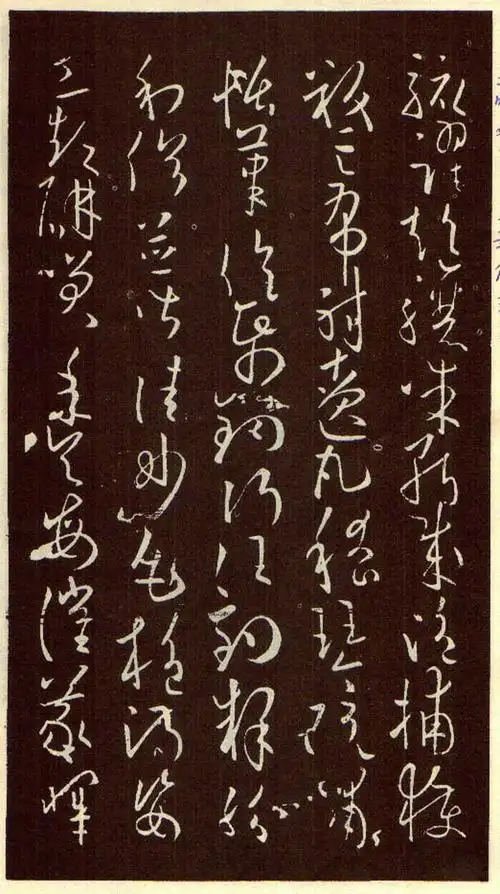 駭躍超驤誅斬賊盜捕獲
叛亡布射遼丸嵇琴阮嘯
恬筆倫紙鈞巧任釣釋紛
利俗並皆佳妙毛施淑姿
工顰妍笑年矢每催羲暉